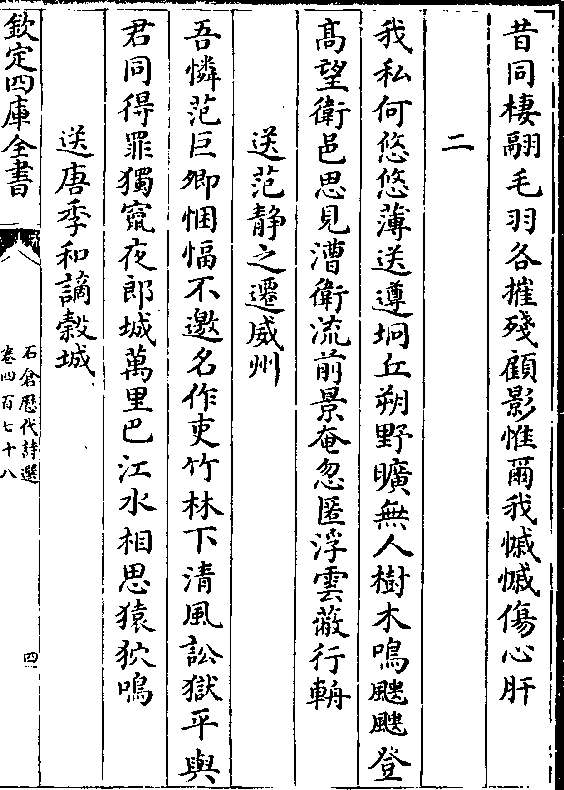 昔同棲翮毛羽各摧殘顧影惟爾我慽慽傷心肝
二
我私何悠悠薄送遵坰丘朔野曠無人樹木鳴颼颼登
高望衛邑思見漕衛流前景奄忽匿浮雲蔽行輈
送范静之遷威州
吾憐范巨卿悃愊不邀名作吏竹林下清風訟獄平與
君同得罪獨竄夜郎城萬里巴江水相思猿狖鳴
送唐季和謫榖城
欽定四庫全書
石倉歷代詩選
卷四百七十八
四